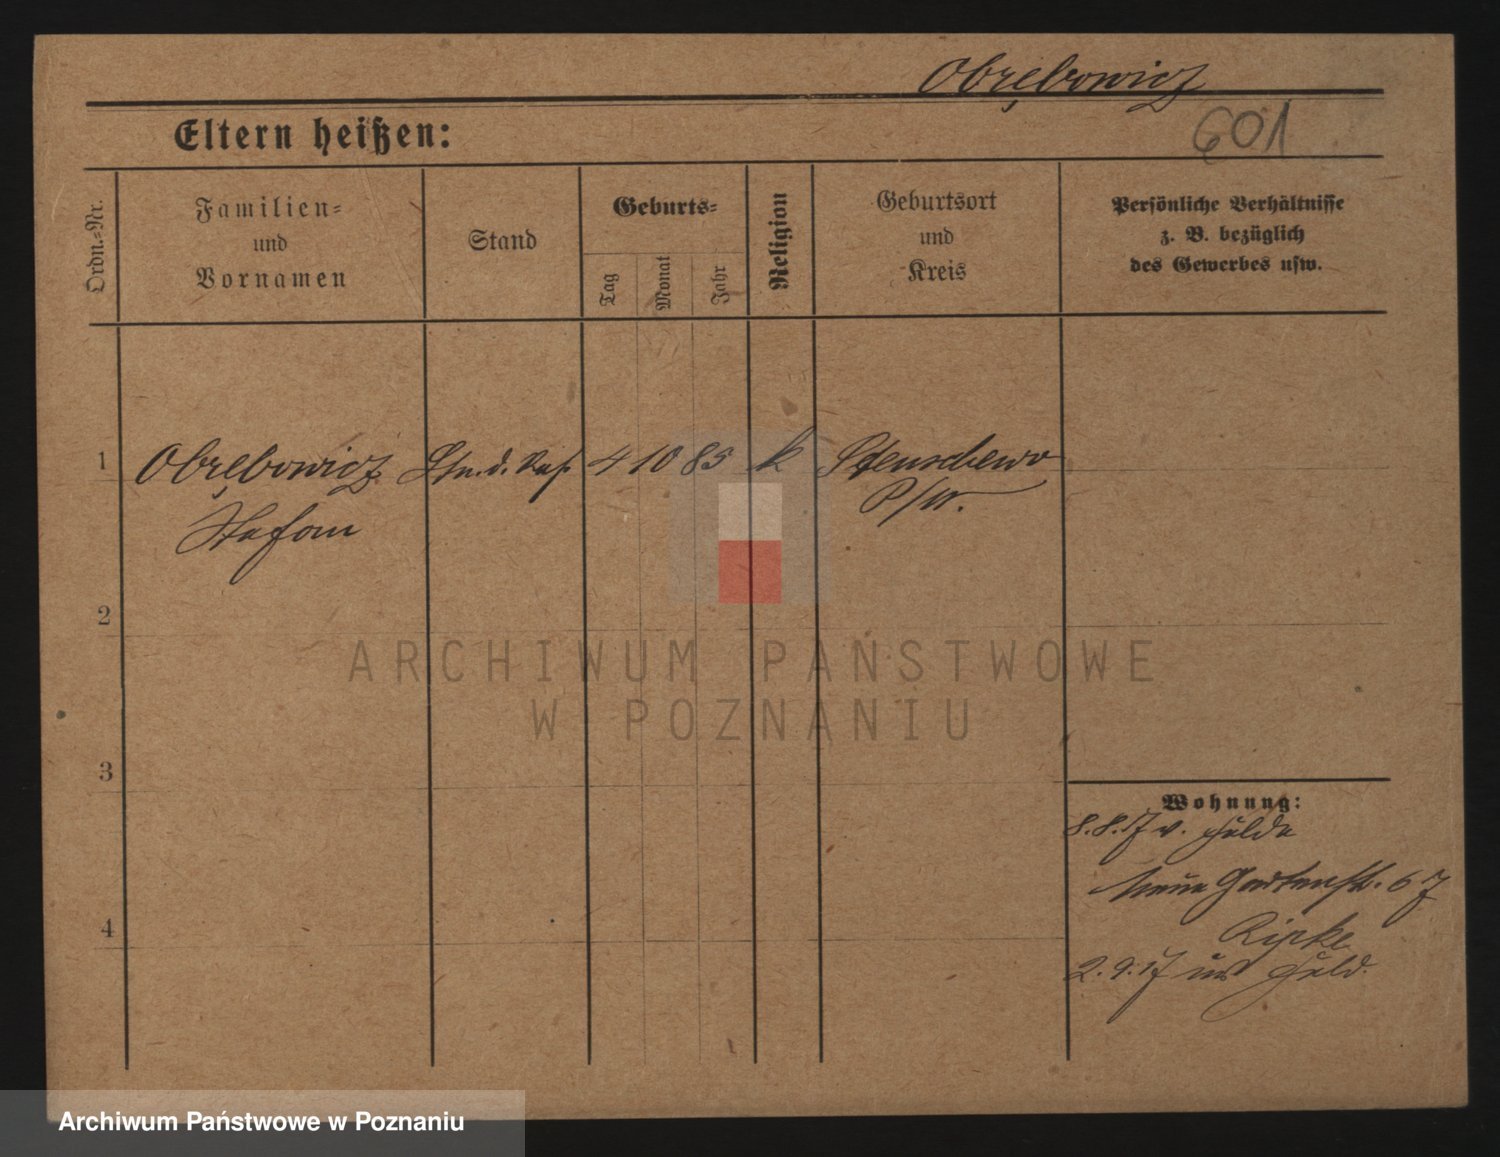 Obrębowicz
601
Eltern heißen:
Ordn.-Nr.
Familien-
und
Vornamen
Stand
Geburts-
Tag
Monat
Jahr
Religion
Geburtsort
und
Kreis
Persönliche Verhältnisse
z. B. bezüglich
des Gewerbes usw.
1 Obrębowicz 4 10 85 k
Stefan
2
3
4
Wohnung:
8.8.17 v.
Neue Gartenstr. 67
Ripke
2.9.17
ARCHIWUM PAŃSTWOWE
W POZNANIU
Archiwum Państwowe w Poznaniu